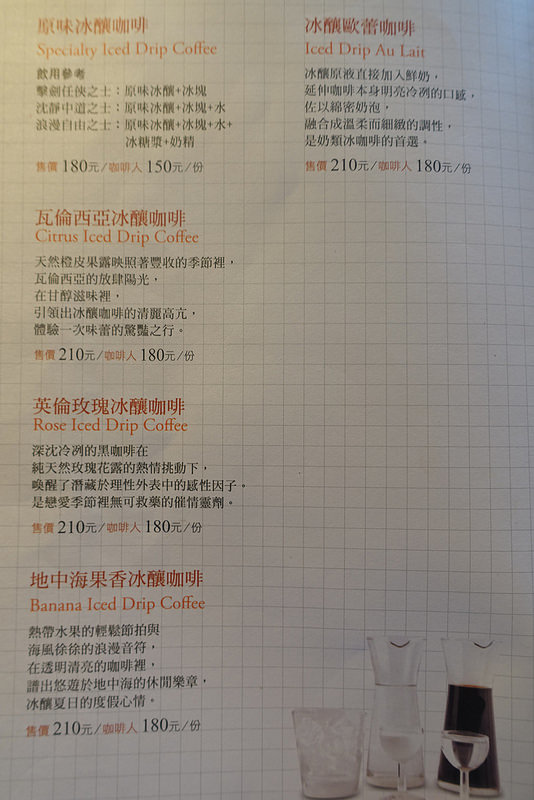 原味冰釀咖啡
Specialty Iced Drip Coffee
飲用參考
擊劍任俠之士：原味冰釀+冰塊
沈靜中道之士：原味冰釀+冰塊+水
浪漫自由之士：原味冰釀+冰塊+水+
冰糖漿+奶精
售價 180元/咖啡人 150元/份
瓦倫西亞冰釀咖啡
Citrus Iced Drip Coffee
天然橙皮果露映照著豐收的季節裡，
瓦倫西亞的放肆陽光，
在甘醇滋味裡，
引領出冰釀咖啡的清麗高亢，
體驗一次味蕾的驚豔之行。
售價 210元/咖啡人 180元/份
英倫玫瑰冰釀咖啡
Rose Iced Drip Coffee
深沈冷冽的黑咖啡在
純天然玫瑰花露的熱情挑動下，
喚醒了潛藏於理性外表中的感性因子。
是戀愛季節裡無可救藥的催情靈劑。
售價 210元/咖啡人 180元/份
地中海果香冰釀咖啡
Banana Iced Drip Coffee
熱帶水果的輕鬆節拍與
海風徐徐的浪漫音符，
在透明清亮的咖啡裡，
譜出悠遊於地中海的休閒樂章，
冰釀夏日的度假心情。
售價 210元/咖啡人 180元/份
冰釀歐蕾咖啡
Iced Drip Au Lait
冰釀原液直接加入鮮奶，
延伸咖啡本身明亮冷冽的口感，
佐以綿密奶泡，
融合成溫柔而細緻的調性，
是奶類冰咖啡的首選。
售價 210元/咖啡人 180元/份